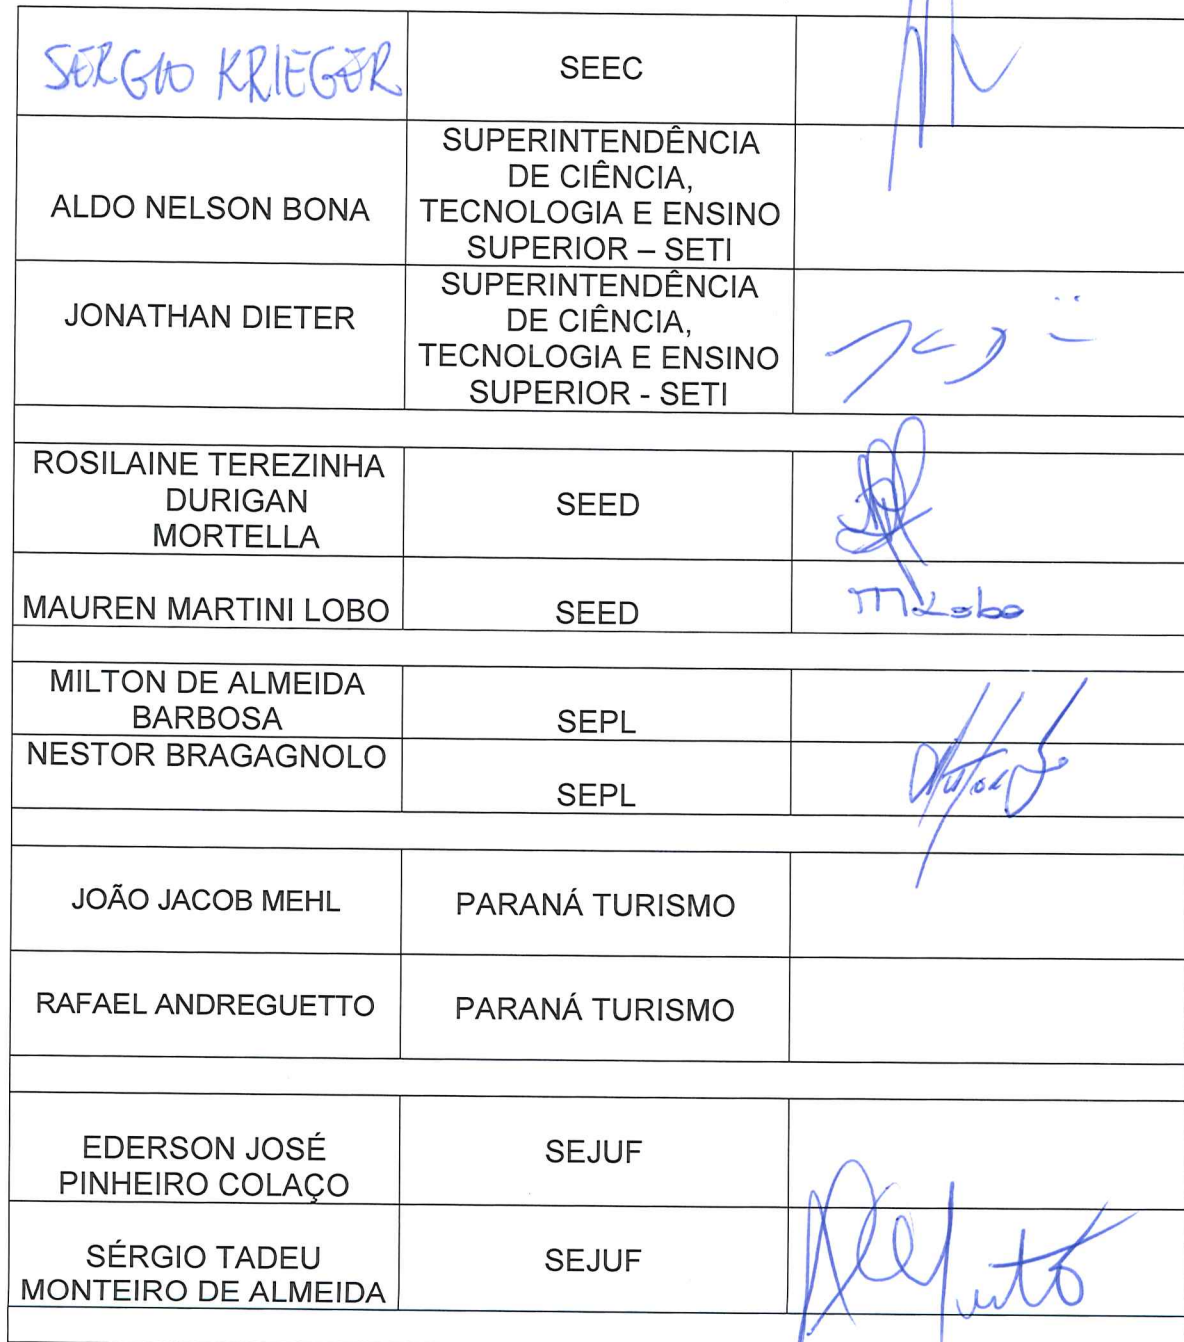 SERGIO KRIEGER
SEEC
ALDO NELSON BONA
SUPERINTENDÊNCIA
DE CIÊNCIA,
TECNOLOGIA E ENSINO
SUPERIOR – SETI
JONATHAN DIETER
SUPERINTENDÊNCIA
DE CIÊNCIA,
TECNOLOGIA E ENSINO
SUPERIOR - SETI
ROSILAINE TEREZINHA
DURIGAN
MORTELLA
SEED
MAUREN MARTINI LOBO
SEED
MLobo
MILTON DE ALMEIDA
BARBOSA
SEPL
NESTOR BRAGAGNOLO
SEPL
JOÃO JACOB MEHL
PARANÁ TURISMO
RAFAEL ANDREGUETTO
PARANÁ TURISMO
EDERSON JOSÉ
PINHEIRO COLAÇO
SEJUF
SÉRGIO TADEU
MONTEIRO DE ALMEIDA
SEJUF